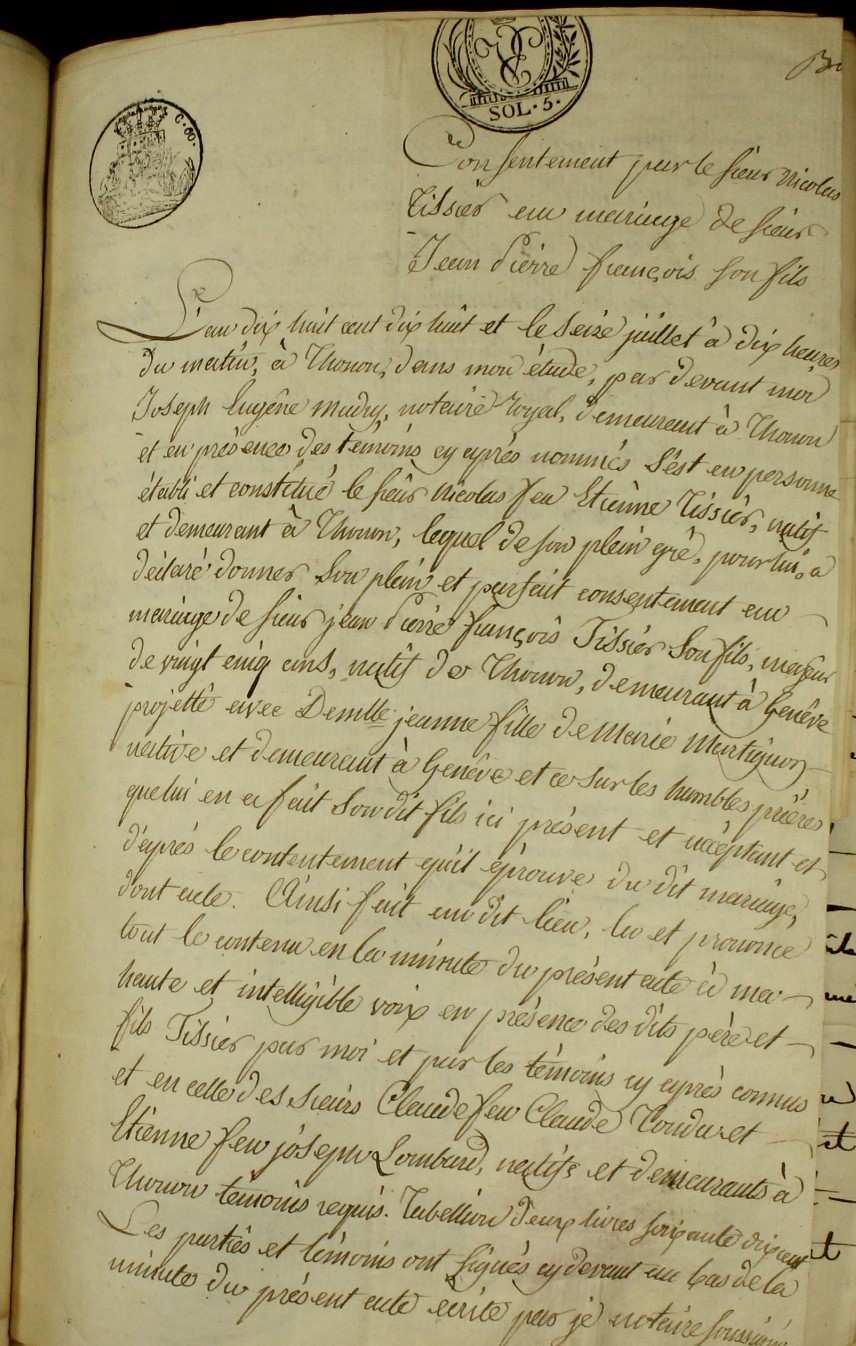 C. 60.
SOL. 5.
Consentement par le sieur Nicolas
Tissier au mariage de sieur
Jean Pierre françois son fils
L'an dix huit cent dix huit et le seize juillet à dix heures
du matin, à Thonon, dans mon étude, par devant moi
Joseph Eugêne Mudry, notaire Royal, demeurant à Thonon
et en présence des témoins cy après nommés s'est en personne
établi et constitué le sieur Nicolas feu Etienne Tissier, natif
et demeurant à Thonon, lequel de son plein gré, pour lui, a
déclaré donner son plein et parfait consentement au
mariage de sieur jean Pierre françois Tissier son fils, majeur
de vingt cinq ans, natif de Thonon, demeurant à Genêve
projetté avec Demlle jeanne fille de Marie Martignon
native et demeurant à Genêve et ce sur les humbles prières
que lui en a fait son dit fils ici présent et acceptant et
d'après le contentement qu'il éprouve du dit mariage,
dont acte. Ainsi fait au dit lieu, lu et prononcé
tout le contenu en la minute du présent acte à ma
haute et intelligible voix en présence des dits père et
fils Tissier par moi et par les témoins cy après connus
et en celle des sieurs Claude feu Claude et
Etienne feu joseph Lombard, natifs et demeurants à
Thonon témoins requis. Tabellion deux livres soixante dix cent
Les parties et témoins ont signés cy devant au bas de la
minute du présent acte écrite par je notaire soussigné